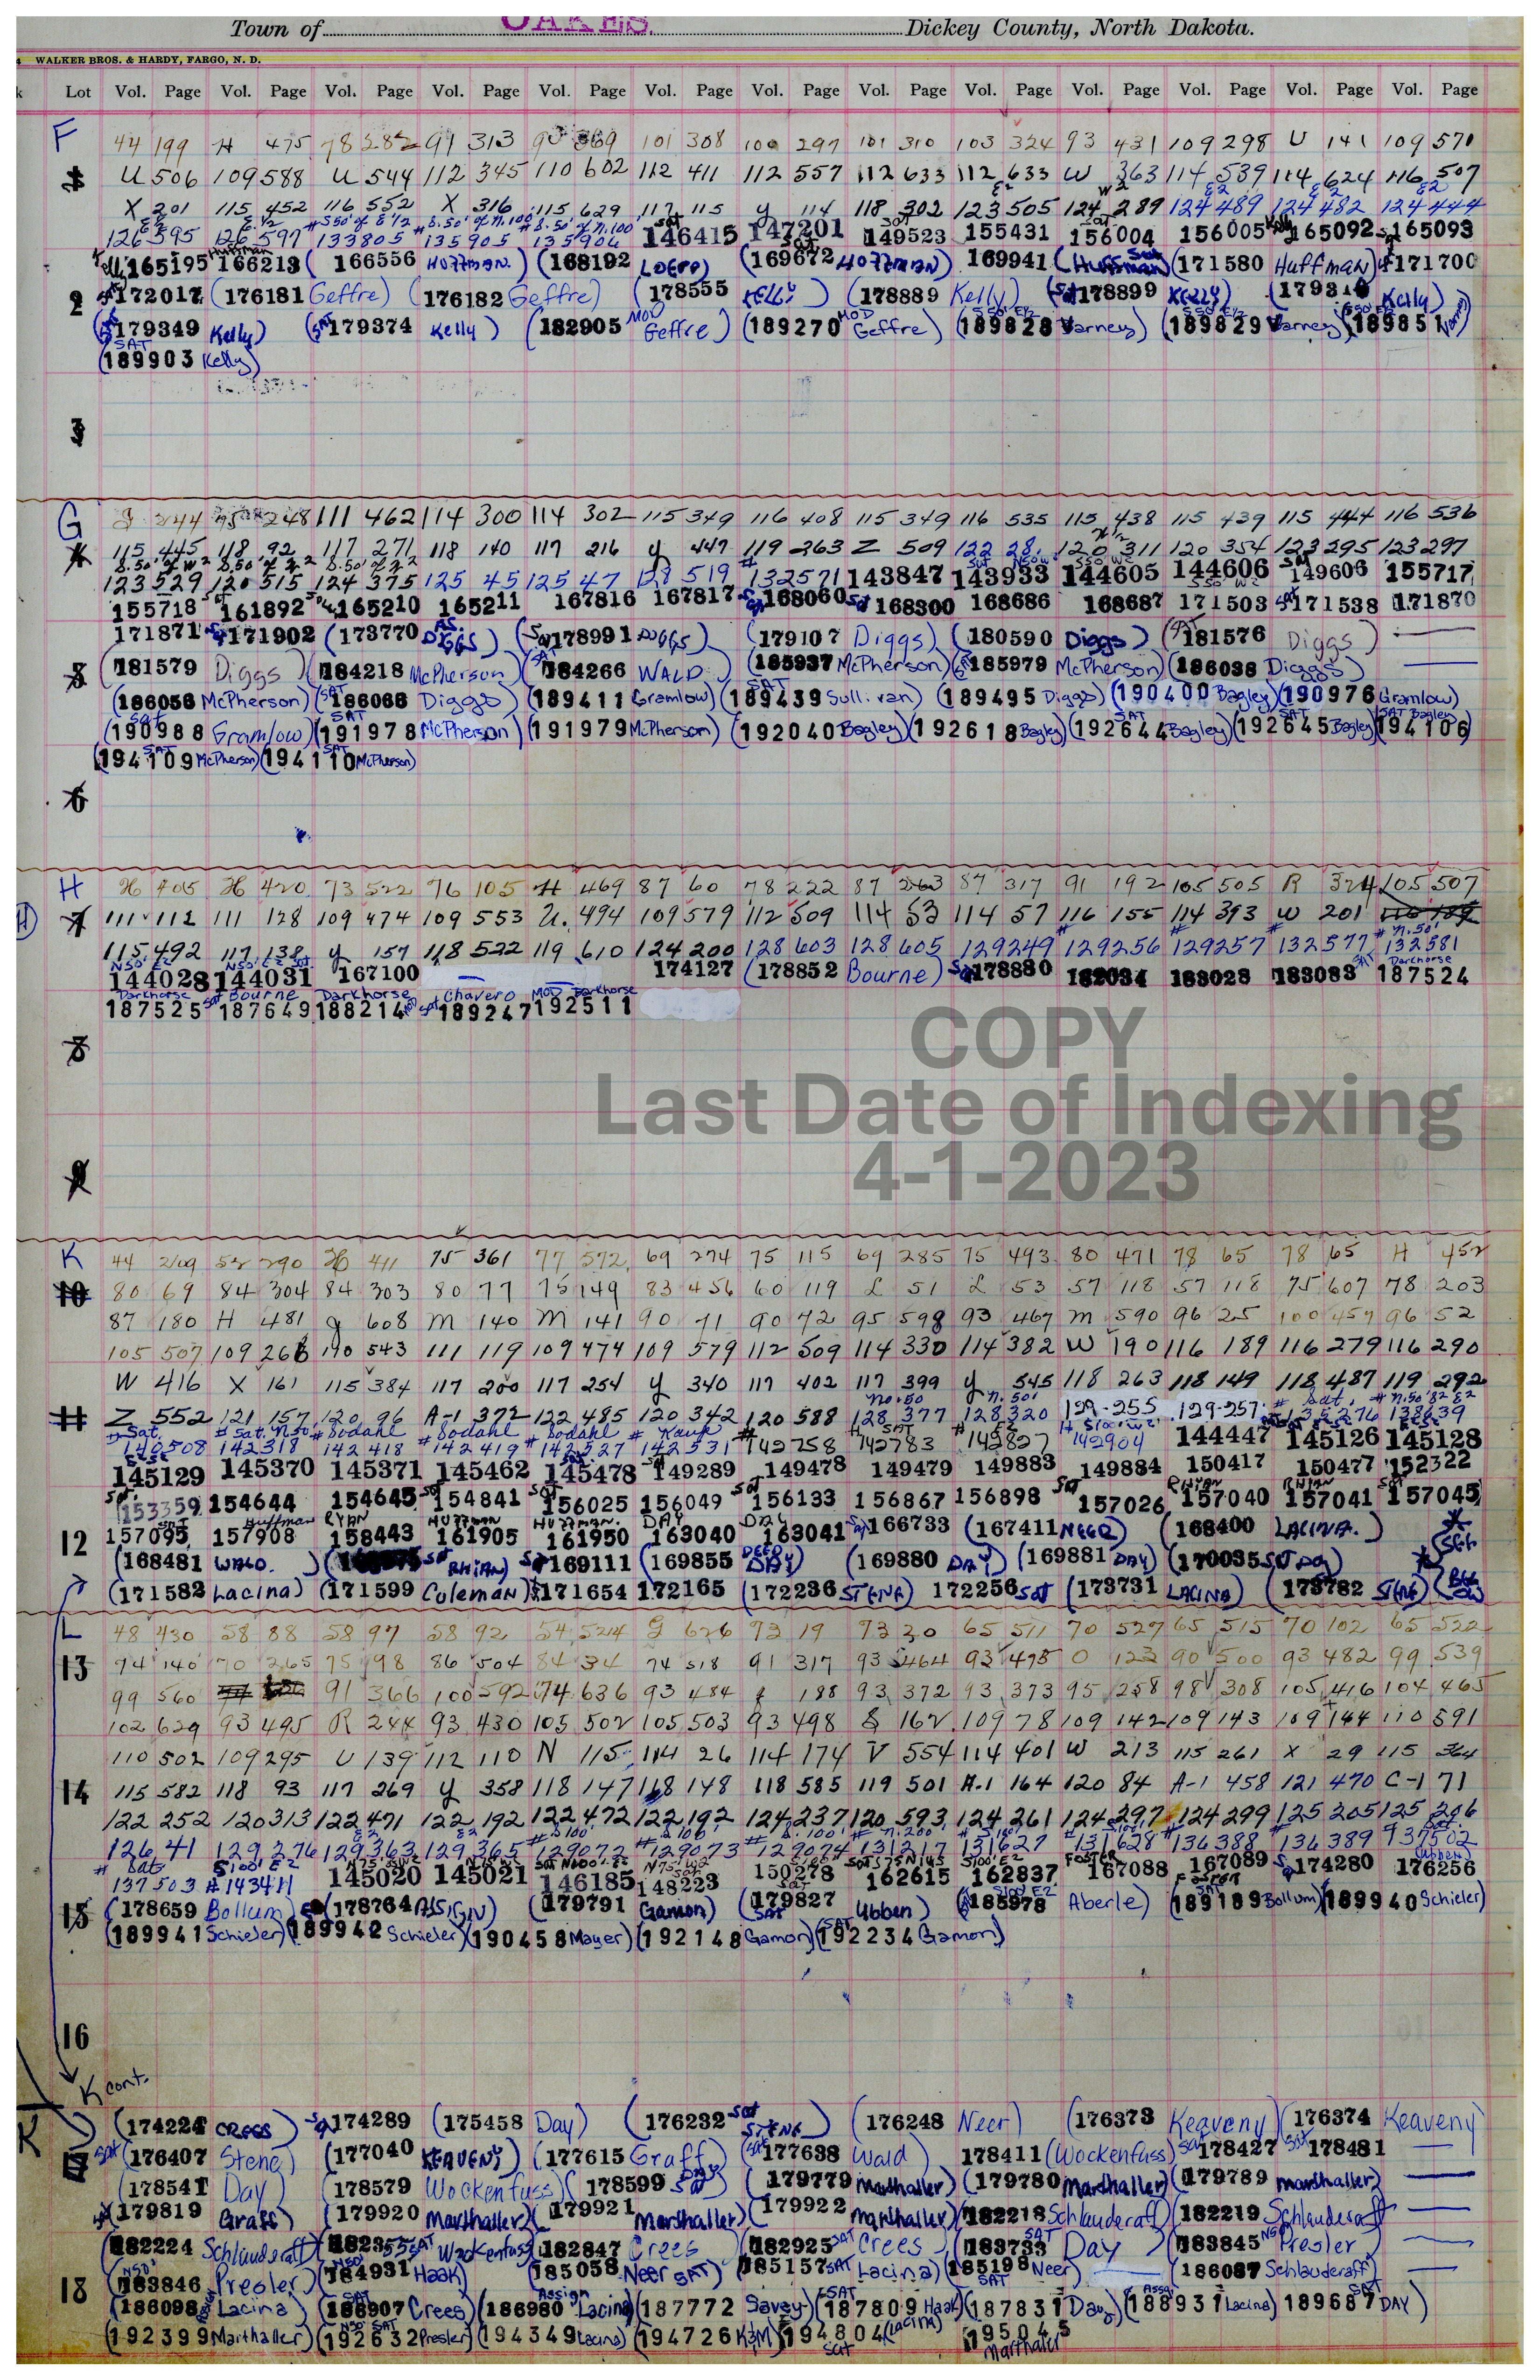 Town of OAKES. Dickey County, North Dakota.
WALKER BROS. & HARDY, FARGO, N. D.
Lot Vol. Page Vol. Page Vol. Page Vol. Page Vol. Page Vol. Page Vol. Page Vol. Page Vol. Page Vol. Page Vol. Page Vol. Page Vol. Page
F 44 199 H 475 78 282 91 313 90 369 101 308 100 297 101 310 103 324 93 431 109 298 U 141 109 571
U 506 109 588 U 544 112 345 110 602 112 411 112 557 112 633 112 633 W 363 114 539 114 624 116 507
X 201 115 452 116 552 X 316 115 629 117 115 y 114 118 302 123 505 124 289 124 489 124 482 124 444
126 395 126 597 133805 135905 135906 146415 147201 149523 155431 156004 156005 Kelly 165092 165093
Kelly 165195 Huffman 166213 (166556 HUFFMAN.) (168192 LOEPP) (169672 HOFFMAN) 169941 (Huffman) (171580 Huffman) 171700
2 172017 (176181 Geffre) (176182 Geffre) (178555 KELLY) (178889 Kelly) (Sat 178899 KELLY) (179310 Kelly)
(179349 Kelly) (SAT 179374 Kelly) (182905 MOD Geffre) (189270 MOD Geffre) (189828 S50' E1/2 Varney) (189829 S50' E1/2 Varney) (189851 Varney)
(189903 SAT Kelly)
3
G J 244 95 248 111 462 114 300 114 302 115 349 116 408 115 349 116 535 115 438 115 439 115 444 116 536
115 445 118 92 117 271 118 140 117 216 y 447 119 263 Z 509 122 28 120 311 120 354 123 295 123 297
123 529 120 515 124 375 125 45 125 47 128 519 132571 143847 143933 144605 144606 149606 155717
155718 161892 165210 165211 167816 167817 168060 168300 168686 168687 171503 171538 171870
171871 171902 (173770 AS. DIGGS) (Sat 178991 DIGGS) (179107 Diggs) (180590 Diggs) (181576 Diggs)
5 (181579 Diggs) (184218 McPherson) (SAT 184266 WALD) (185937 McPherson) (185979 McPherson) (186038 Diggs)
(186056 McPherson) (SAT 186066 Diggs) (189411 Gramlow) (189439 SAT Sullivan) (189495 Diggs) (190400 Bagley) (190976 Gramlow)
(190988 Sat Gramlow) (191978 SAT McPherson) (191979 McPherson) (192040 Bagley) (192618 Bagley) (192644 SAT Bagley) (192645 SAT Bagley) (194106 SAT Bagley)
(194109 SAT McPherson) (194110 SAT McPherson)
6
H H 405 H 420 73 522 76 105 H 469 87 60 78 222 87 263 87 317 91 192 105 505 R 324 105 507
7 111 112 111 128 109 474 109 553 U. 494 109 579 112 509 114 53 114 57 116 155 114 393 W 201
115 492 117 138 y 157 118 522 119 610 124 200 128 603 128 605 129249 129256 129257 132577 132581
144028 144031 167100 174127 (178852 Bourne) 178880 182034 183028 183083 Darkhorse 187524
Darkhorse 187525 Sat Bourne 187649 Darkhorse 188214 Sat Chavero 189247 MOD Darkhorse 192511
8
COPY
Last Date of Indexing
4-1-2023
9
K 44 209 52 290 H 411 75 361 77 572 69 274 75 115 69 285 75 493 80 471 78 65 78 65 H 452
10 80 69 84 304 84 303 80 77 75 149 83 456 60 119 L 51 L 53 57 118 57 118 75 607 78 203
87 180 H 481 g 608 M 140 M 141 90 71 90 72 95 598 93 467 M 590 96 25 100 457 96 52
105 507 109 266 110 543 111 119 109 474 109 579 112 509 114 330 114 382 W 190 116 189 116 279 116 290
W 416 X 161 115 384 117 200 117 254 y 340 117 402 117 399 y 545 118 263 118 149 118 487 119 292
11 Z 552 121 157 120 96 A-1 372 122 485 120 342 120 588 128 377 128 320 129-255 129-257 135276 138639
140508 142318 142418 142419 142527 142531 142758 142783 142827 142904 144447 145126 145128
145129 145370 145371 145462 145478 149289 149478 149479 149883 149884 150417 150477 152322
153359 154644 154645 154841 156025 156049 156133 156867 156898 157026 157040 157041 157045
12 157095 157908 Huffman 158443 RYAN 161905 HUFFMAN 161950 HUFFMAN. 163040 DAY 163041 DAY 166733 (167411 NEER) (168400 LACINA.)
(168481 WALD.) 169111 (169855 DEED DAY) (169880 DAY) (169881 DAY) (170035 Sat Day)
(171582 Lacina) (171599 Coleman) 171654 172165 (172236 STENE) 172256 Sat (173731 LACINA) (173782 STENE)
L 48 430 58 88 58 97 58 92 54 524 G 626 73 19 73 20 65 511 70 527 65 515 70 102 65 522
13 94 140 70 265 75 98 86 504 84 34 74 518 91 317 93 464 93 475 O 123 90 500 93 482 99 539
99 560 91 366 100 592 74 636 93 484 188 93 372 93 373 95 258 98 308 105 416 104 465
102 629 93 495 R 244 93 430 105 502 105 503 93 498 S 162 109 78 109 142 109 143 109 144 110 591
110 502 109 295 U 139 112 110 N 115 114 26 114 174 V 554 114 401 W 213 115 261 X 29 115 364
14 115 582 118 93 117 269 y 358 118 147 118 148 118 585 119 501 A-1 164 120 84 A-1 458 121 470 C-1 71
122 252 120 313 122 471 122 192 122 472 122 192 124 237 120 593 124 261 124 297 124 299 125 205 125 206
126 41 129 276 129 363 129 365 129072 129073 129074 131217 131627 131628 136388 136389 137502
137503 143411 145020 145021 146185 148223 150278 162615 162837 FOSTER 167088 167089 174280 176256
15 (178659 Bollum) (178764 ASSIGN) (179791 Gamon) (179827 Ubben) (185978 S100 E2 Aberle) (189189 SAT Bollum) (189940 Schieler)
(189941 Schieler) (189942 Schieler) (190458 Mayer) (192148 Gamon) (SAT 192234 Gamon)
16
K cont.
K (174224 CREES) 174289 (175458 Day) (176232 Sat STENE) (176248 Neer) (176373 Keaveny) (176374 Keaveny)
Sat (176407 Stene) (177040 KEAVENY) (177615 Graff) (Sat 177638 Wald) 178411 (Wockenfuss) Sat 178427 Sat 178481
(178541 Day) (178579 Wockenfuss) (178599 Day Sat) (179779 Marthaller) (179780 Marthaller) (179789 Marthaller)
(179819 Graff) (179920 Marthaller) (179921 Marthaller) (179922 Marthaller) (182218 Schlauderaff) (182219 Schlauderaff)
(182224 Schlauderaff) (182355 SAT Wockenfuss) (182847 Crees) (182925 SAT Crees) (183733 SAT Day) (183845 N50' Presler)
18 (183846 N50' Presler) (184931 N50' Haak) (185058 Neer SAT) (185157 SAT Lacina) (185198 SAT Neer) (186087 Schlauderaff)
(186098 Lacina) (186907 SAT Crees) (186980 Assign Lacina) (187772 Savey) (187809 SAT Haak) (187831 Day) (188931 Assgn Lacina) 189687 SAT DAY)
(192399 Marthaller) (192632 N50' SAT Presler) (194349 Lacina) (194726 K3M) (194804 Sat (LACINA) (195045 Marthaller)